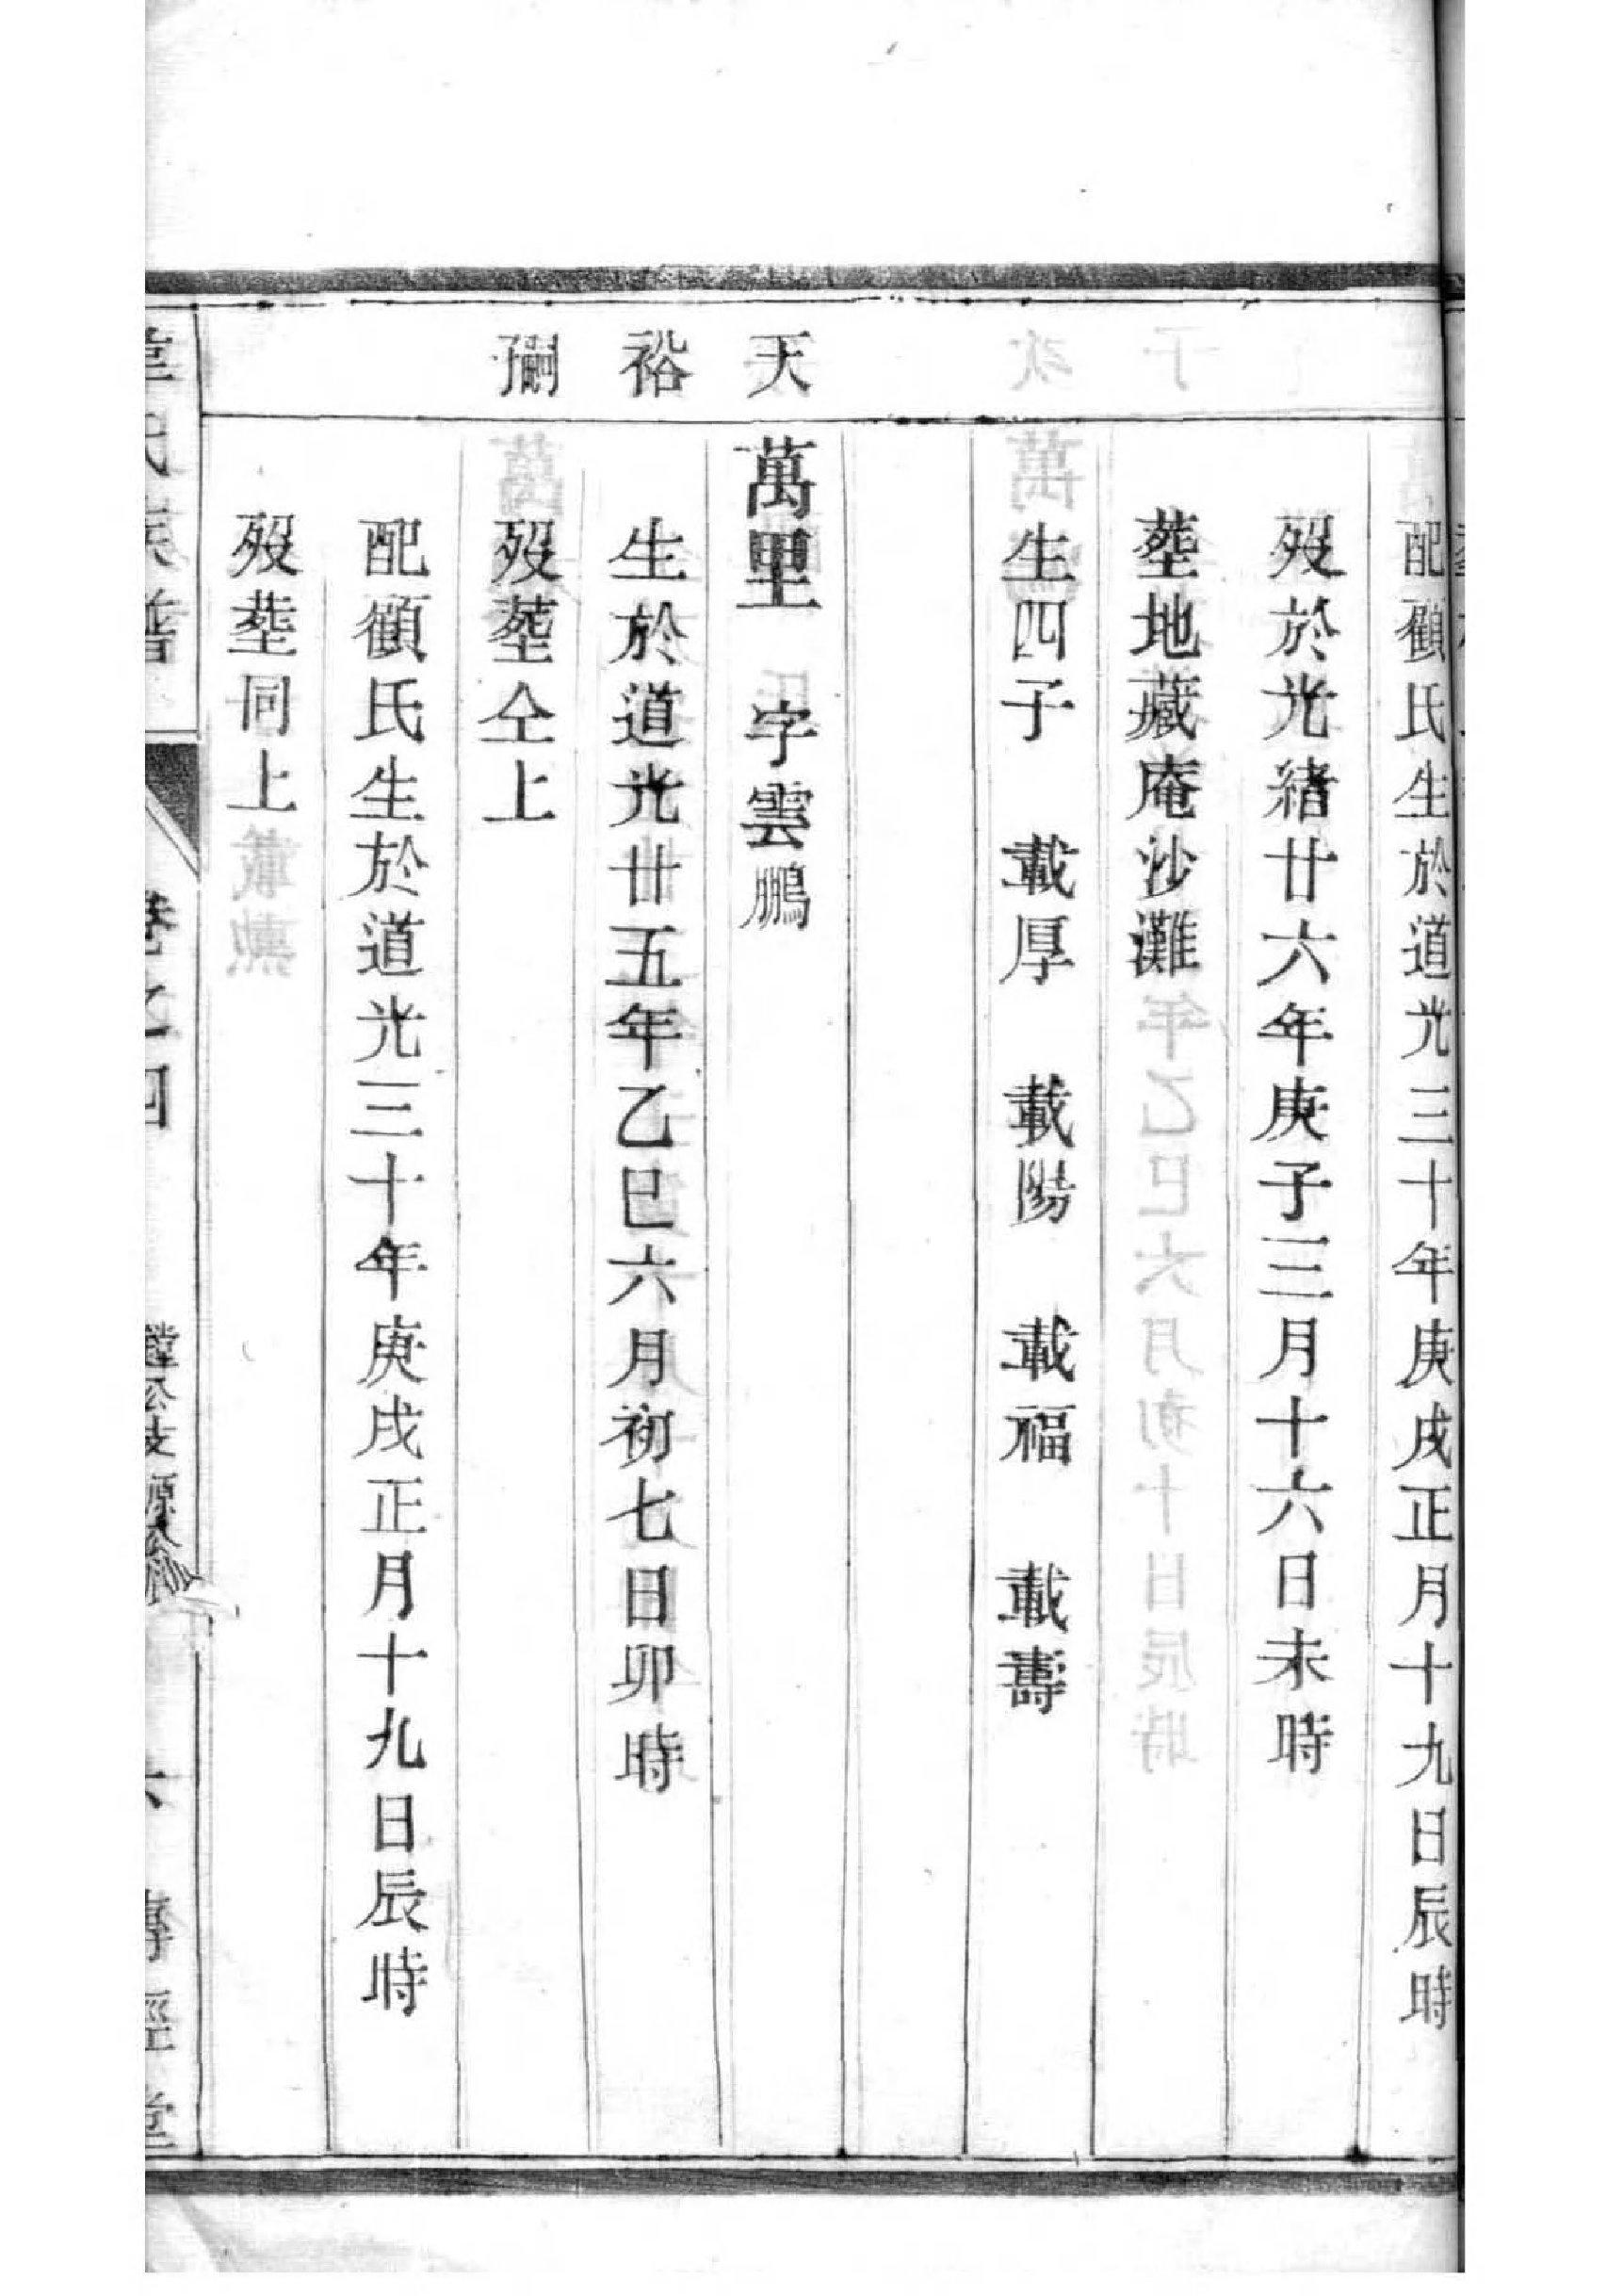 配顧氏生於道光三十年庚戌正月十九日辰時
歿於光緒廿六年庚子三月十六日未時
塟地藏庵沙灘
生四子 載厚 載陽 載福 載壽
天 萬里 字雲鵬
裕 生於道光廿五年乙巳六月初七日卯時
歿塟仝上
配顧氏生於道光三十年庚戌正月十九日辰時
歿塟同上
氏族譜 卷之四
六 經堂